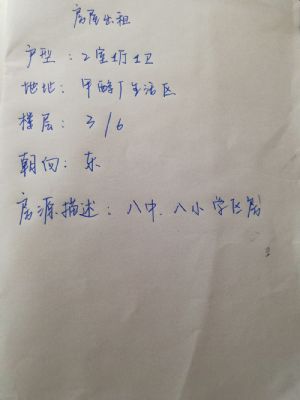 房屋出租
户型：2室1厅1卫
地址：甲醇厂生活区
楼层：3/6
朝向：东
房源描述：八中、八小学区房